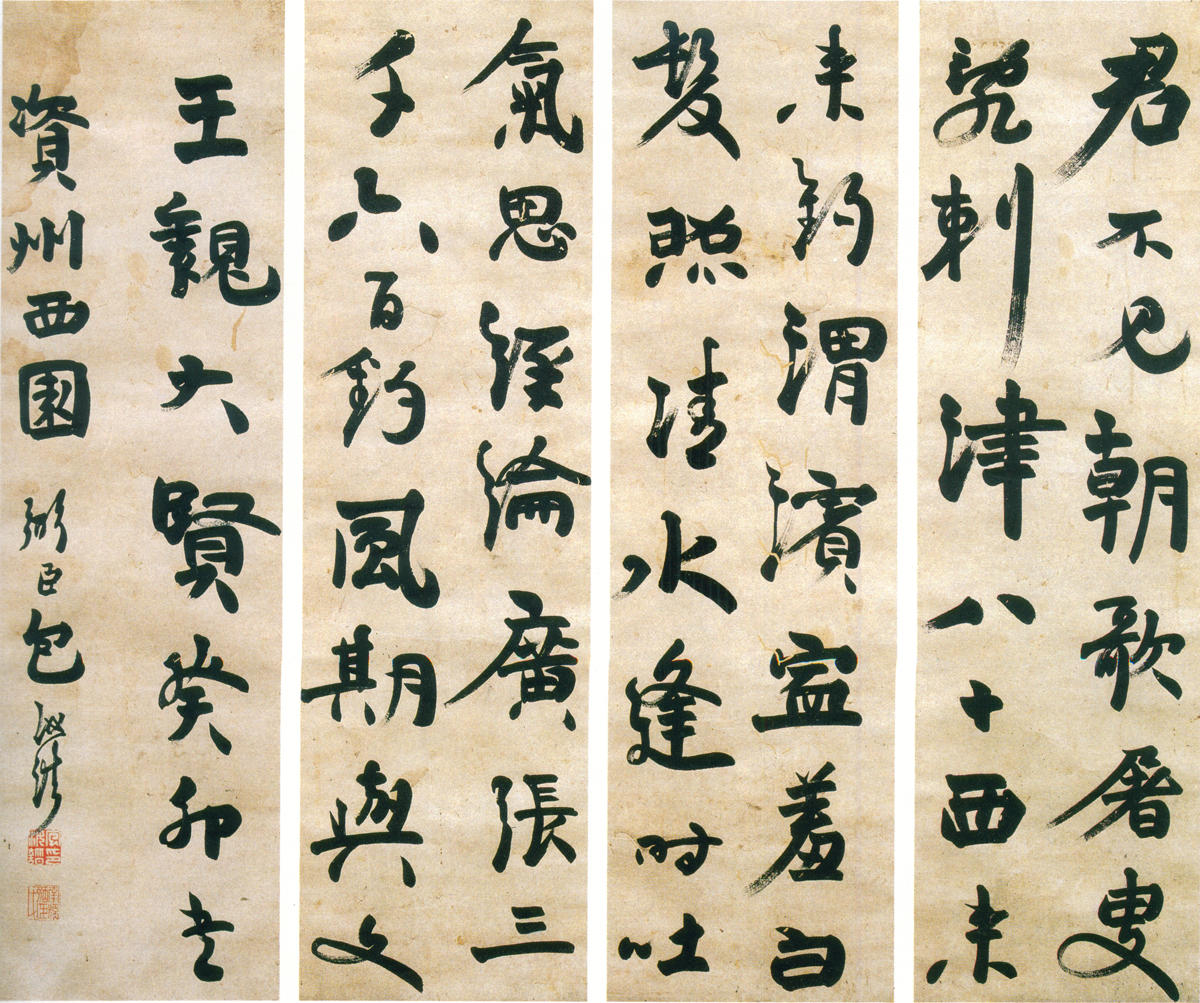 君不見朝歌屠叟
辭刺津八十西来
来釣渭濱寧羞白
髮照清水逢时吐
氣思經綸廣張三
千六百釣風期與文
王親大賢癸卯書
資州西園 弼臣包汝諧